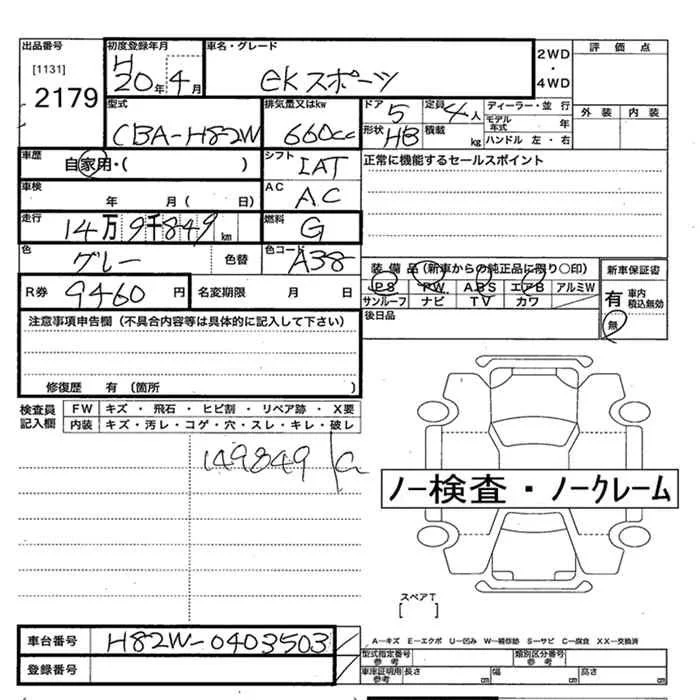 出品番号 初度登録年月 車名・グレード 2WD・4WD 評価点
[1131] H 20年 4月 eKスポーツ
2179 外装 内装
型式 排気量又はkw ドア 5 定員 4人 ディーラー・並行
CBA-H82W 660cc 形状 HB 積載 kg モデル年式 年
ハンドル 左・右
車歴 自家用・( ) シフト IAT 正常に機能するセールスポイント
車検 年 月( 日) AC AC
走行 14万9千849km 燃料 G
色 グレー 色替 色コード A38 装備品(新車からの純正品に限り○印) 新車保証書
R券 9460円 名変期限 月 日 PS PW ABS エアB アルミW 有 車内積込無効
サンルーフ ナビ TV カワ 無
注意事項申告欄(不具合内容等は具体的に記入して下さい) 後日品
修復歴 有(箇所 )
検査員記入欄 FW キズ・飛石・ヒビ割・リペア跡・X要
内装 キズ・汚レ・コゲ・穴・スレ・キレ・破レ
149849
ノー検査・ノークレーム
スペアT
[ ]
車台番号 H82W-0403503 A－キズ E－エクボ U－凹み W－補修跡 S－サビ C－腐食 XX－交換済
型式指定番号 参考 類別区分番号 参考
登録番号 車庫証明用 参考 長さ cm 幅 cm 高さ cm